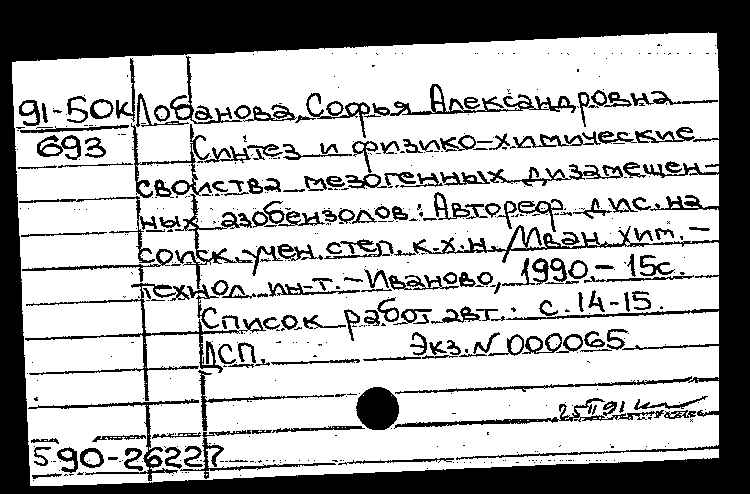 91-50к Лобанова, Софья Александровна
693 Синтез и физико-химические
свойства мезогенных дизамещен-
ных азобензолов: Автореф. дис. на
соиск. учен. степ. к.х.н. / Иван. хим.-
технол. ин-т. - Иваново, 1990. - 15с.
Список работ авт.: с. 14-15.
ДСП. Экз. N 000065.
25 II 91
590-26227